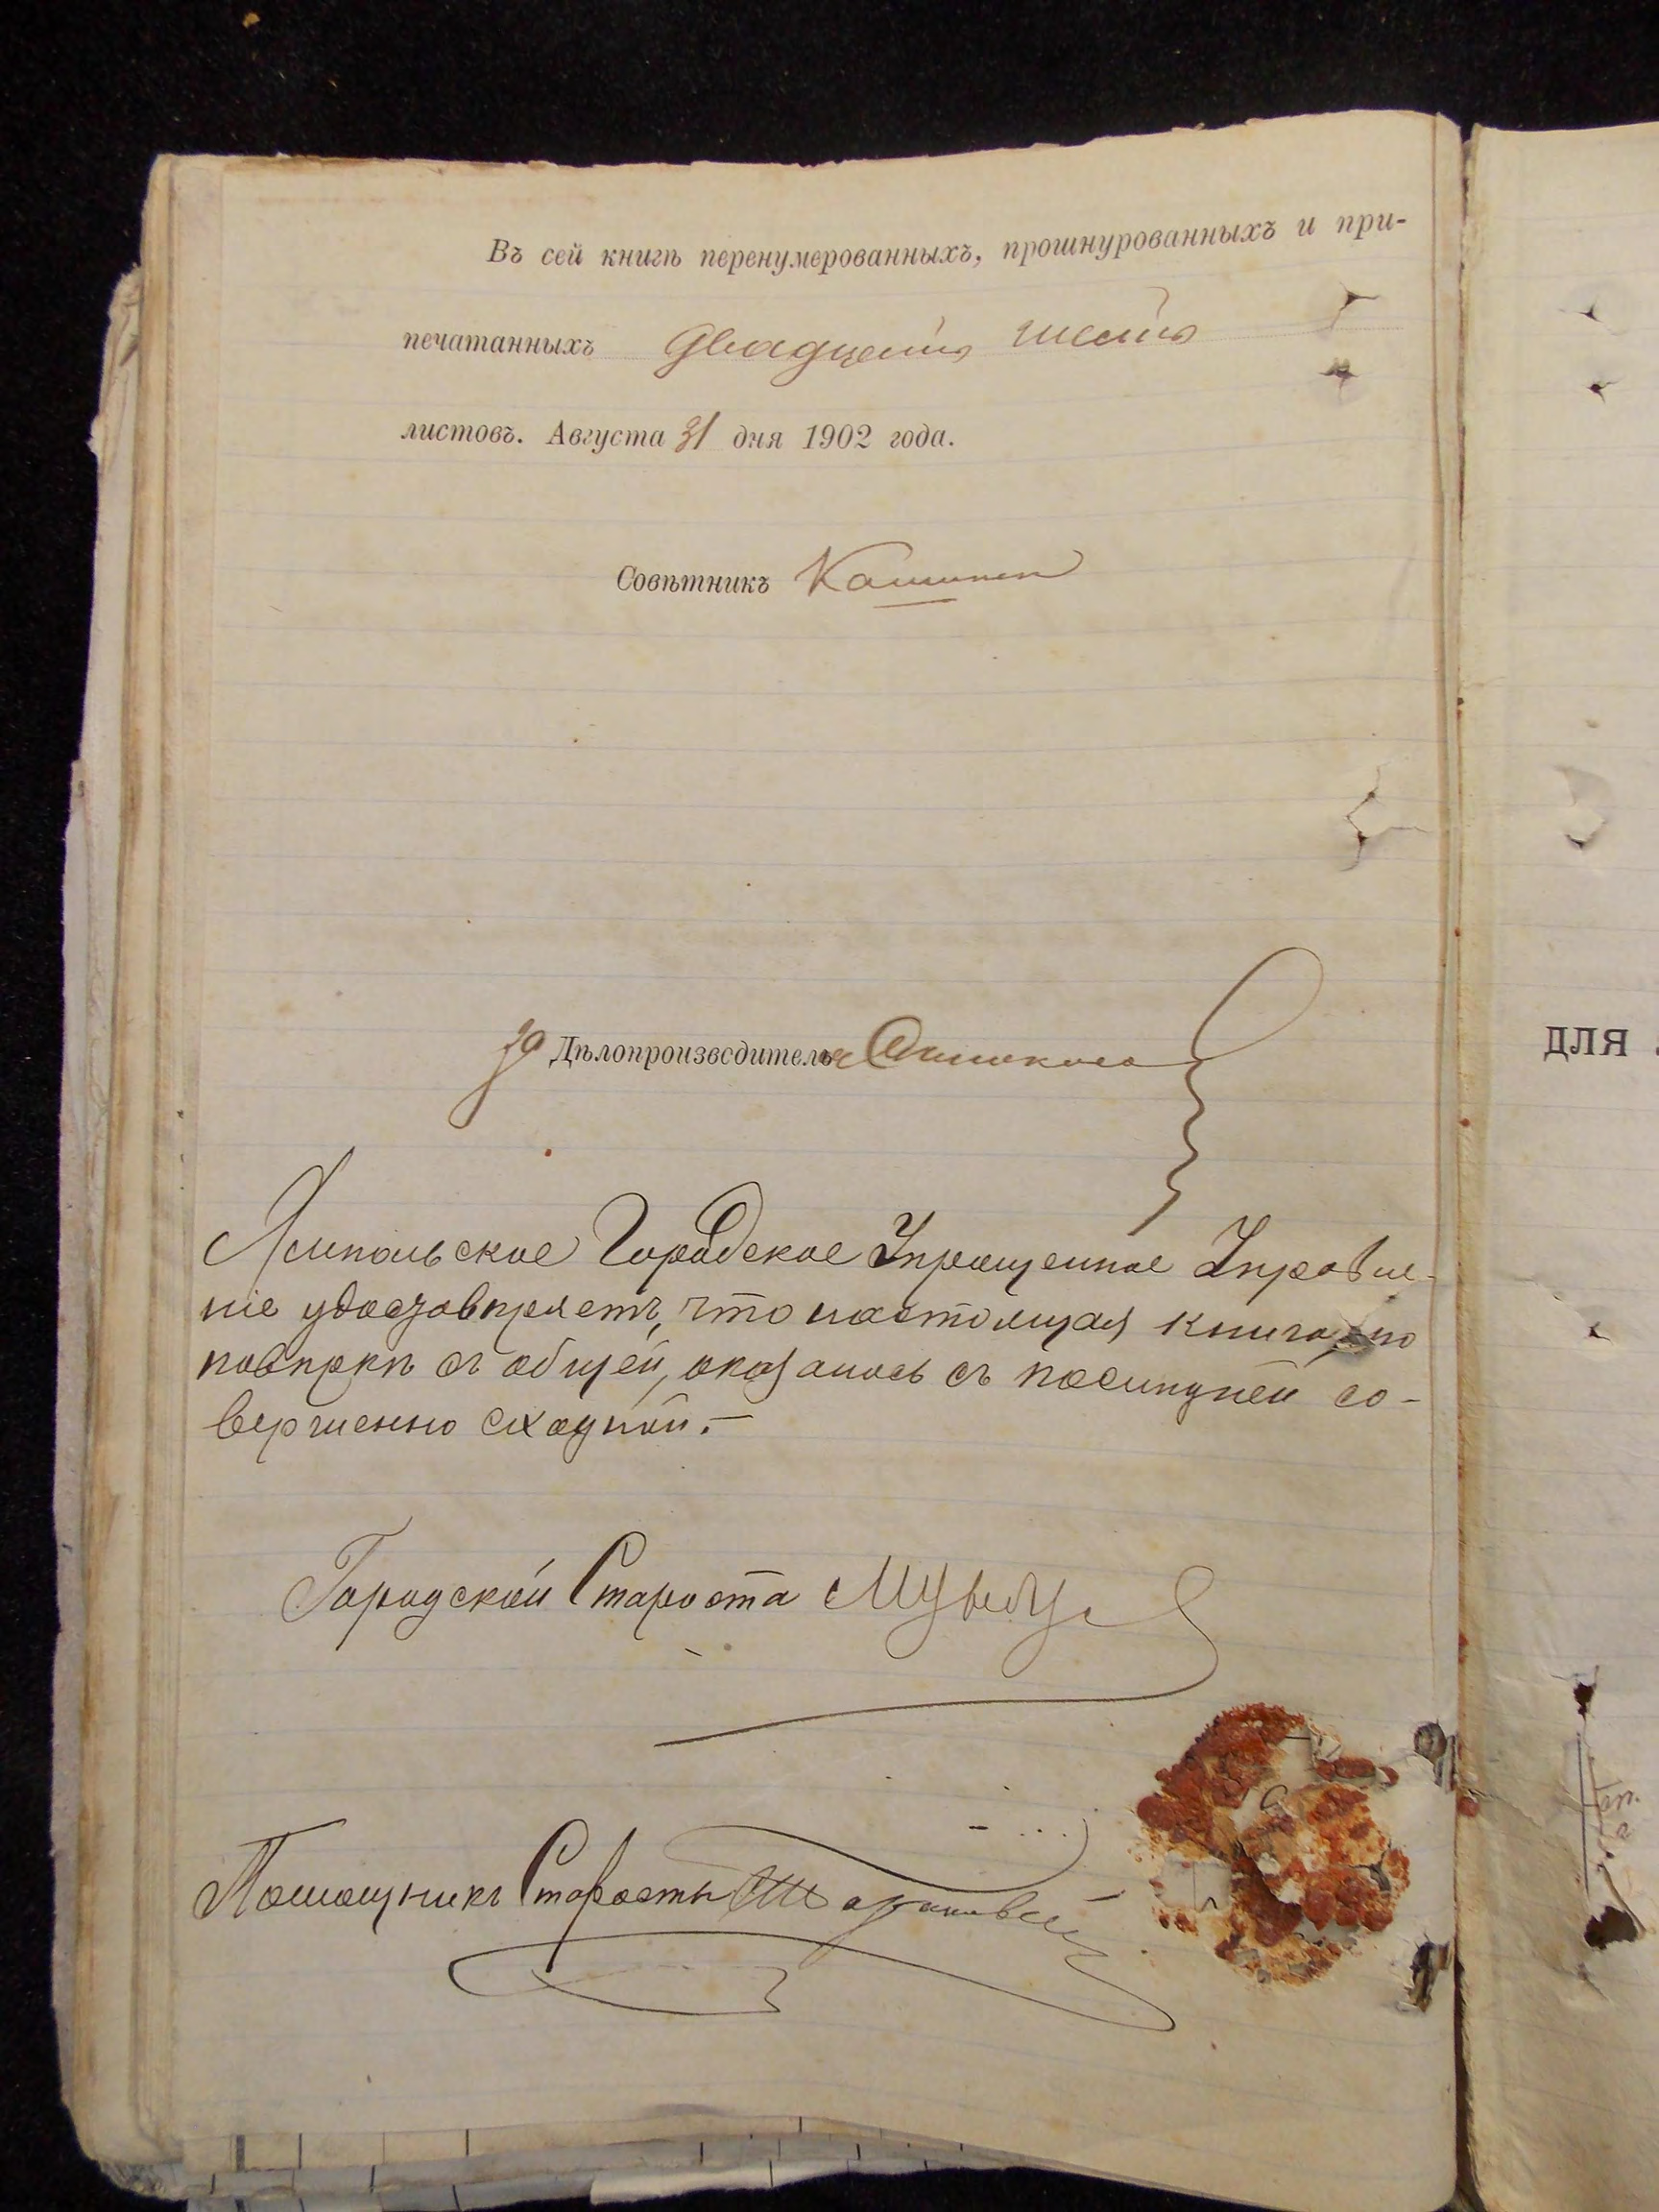 Въ сей книгѣ перенумерованныхъ, прошнурованныхъ и при-
печатанныхъ двадцать шесть
листовъ. Августа 31 дня 1902 года.
Совѣтникъ
за Дѣлопроизводителя
Ямпольское Городское Упрощенное Управле-
ніе удостовѣряетъ, что настоящая книга, по
повѣркѣ съ общей, оказалась съ послѣдней со-
вершенно сходной.-
Городской Староста
Помощникъ Старосты
ДЛЯ